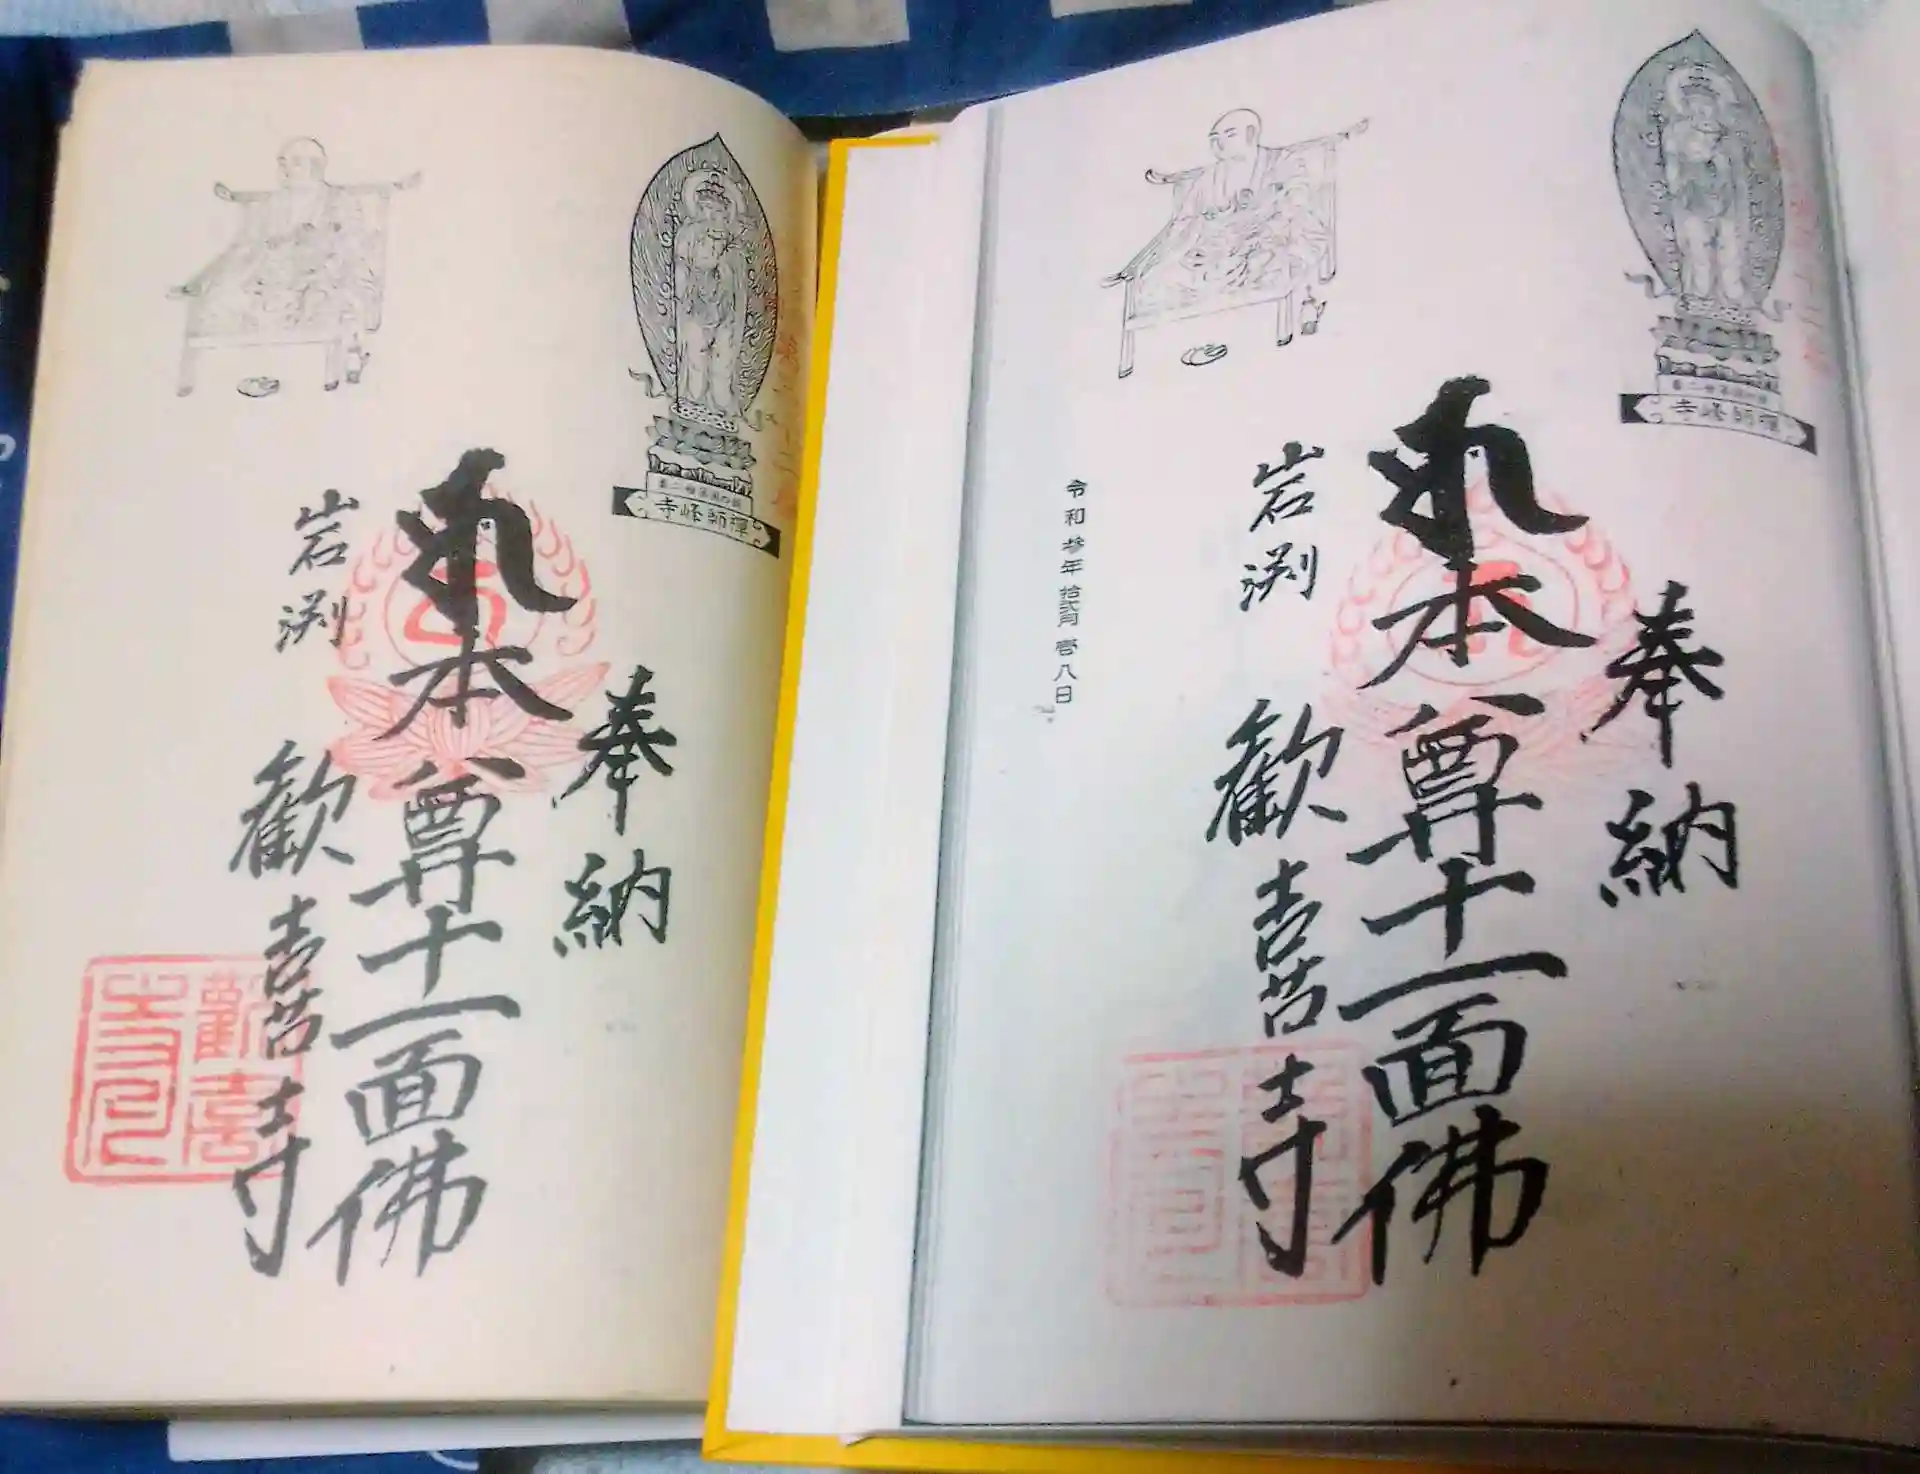 禪師峰寺
奉納
本尊十一面佛
岩渕 歡喜寺
歡喜
寺印
禪師峰寺
奉納
本尊十一面佛
岩渕 歡喜寺
令和参年拾弐月壱八日